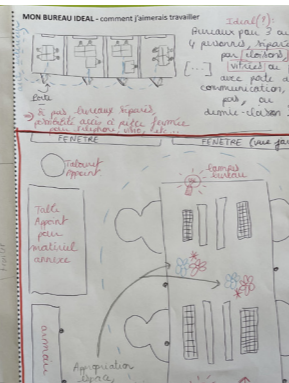 MON BUREAU IDEAL - comment j'aimerais travailler
Idéal (?) :
Bureaux pour 3 ou
4 personnes, séparés
par cloisons
vitrées ou
avec porte de
communication,
pas, ou
demie-cloison
[...]
Porte
→ Si pas bureaux séparés,
possibilité accès à pièce fermée
pour téléphone, visio, etc...
FENETRE
FENETRE (vue
Tabouret
Appoint
lampes
bureau
Table
Appoint
pour
matériel
annexe
armoire
Appropriation